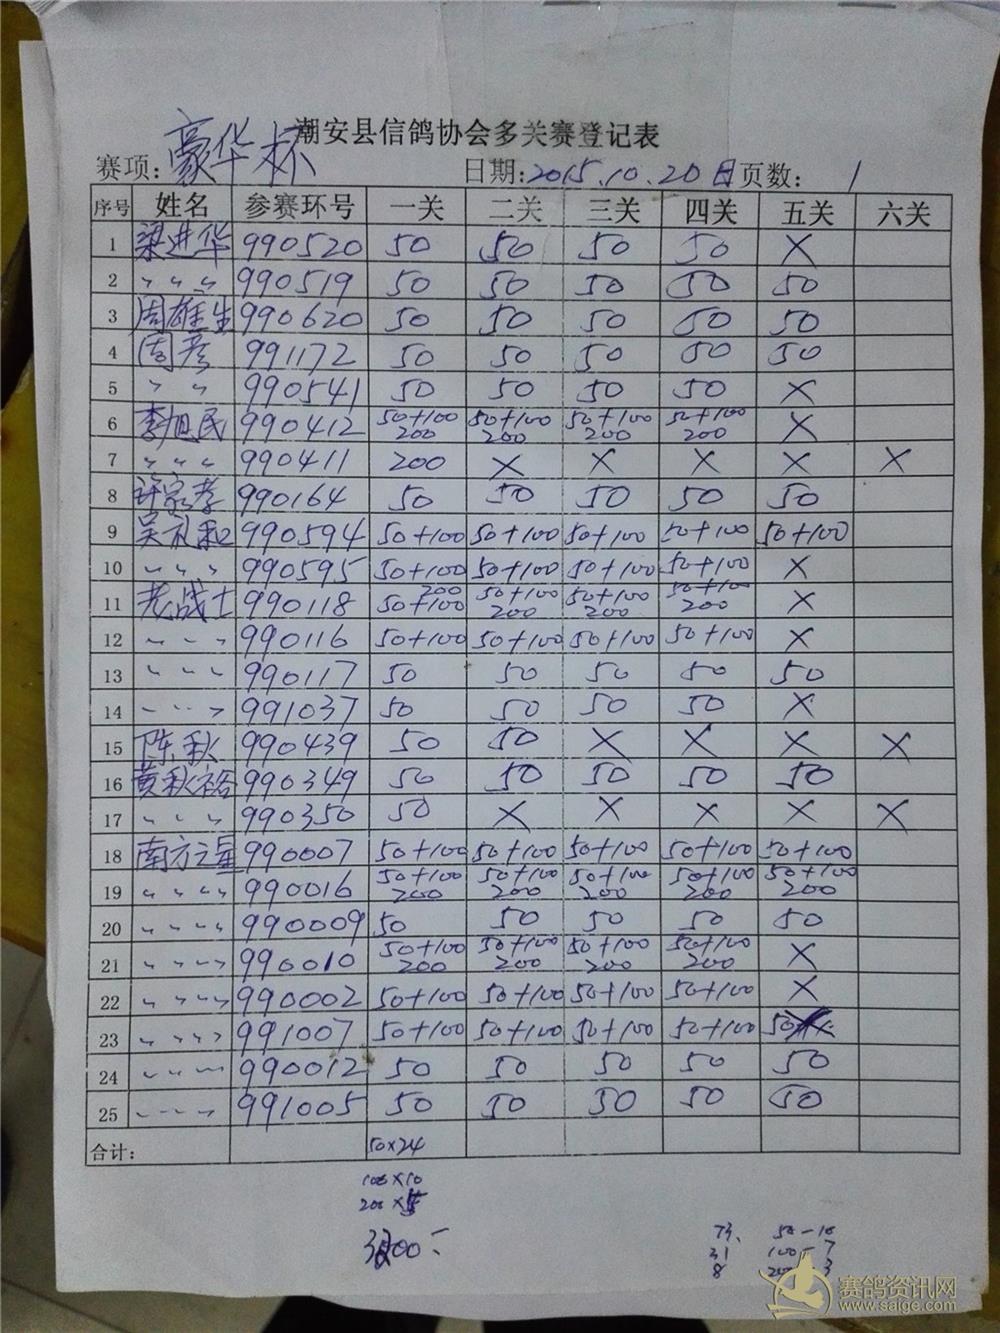 潮安县信鸽协会多关赛登记表
赛项: 豪华杯 日期:2015.10.20日 页数: 1
序号 姓名 参赛环号 一关 二关 三关 四关 五关 六关
1 梁进华 990520 50 50 50 50 ×
2 〃 〃 〃 990519 50 50 50 50 50
3 周雄生 990620 50 50 50 50 50
4 周彦 991172 50 50 50 50 50
5 〃 〃 990541 50 50 50 50 ×
6 李旭民 990412 50+100 200 50+100 200 50+100 200 50+100 200 ×
7 〃 〃 〃 990411 200 × × × × ×
8 许家孝 990164 50 50 50 50 50
9 吴礼和 990594 50+100 50+100 50+100 50+100 50+100
10 〃 〃 〃 990595 50+100 50+100 50+100 50+100 ×
11 老战士 990118 200 50+100 50+100 200 50+100 200 50+100 200 ×
12 〃 〃 〃 990116 50+100 50+100 50+100 50+100 ×
13 〃 〃 〃 990117 50 50 50 50 50
14 〃 〃 〃 991037 50 50 50 50 ×
15 陈秋 990439 50 50 × × × ×
16 黄秋裕 990349 50 50 50 50 50
17 〃 〃 〃 990350 50 × × × × ×
18 南方之星 990007 50+100 50+100 50+100 50+100 50+100
19 〃 〃 〃 〃 990016 50+100 200 50+100 200 50+100 200 50+100 200 50+100 200
20 〃 〃 〃 〃 990009 50 50 50 50 50
21 〃 〃 〃 〃 990010 50+100 200 50+100 200 50+100 200 50+100 200 ×
22 〃 〃 〃 〃 990002 50+100 50+100 50+100 50+100 ×
23 〃 〃 〃 〃 991007 50+100 50+100 50+100 50+100 50
24 〃 〃 〃 〃 990012 50 50 50 50 50
25 〃 〃 〃 〃 991005 50 50 50 50 50
合计: 50×24
100×10
200×
73、 50-10
31 100-7
8 200-3
赛鸽资讯网
www.saige.com